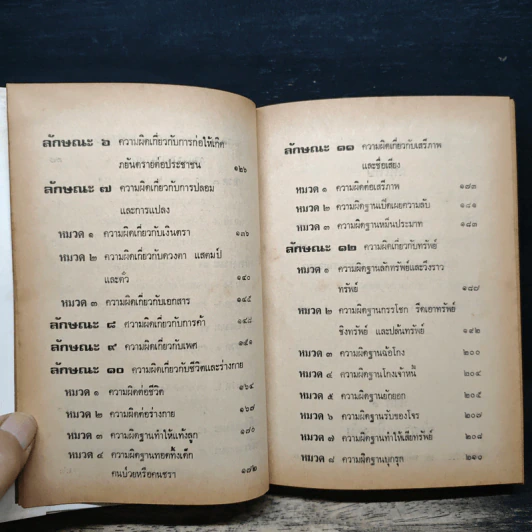 ลักษณะ ๖ ความผิดเกี่ยวกับการก่อให้เกิด
ภยันตรายต่อประชาชน ๑๒๖
ลักษณะ ๗ ความผิดเกี่ยวกับการปลอม
และการแปลง
หมวด ๑ ความผิดเกี่ยวกับเงินตรา ๑๓๖
หมวด ๒ ความผิดเกี่ยวกับดวงตา แสตมป์
และตั๋ว ๑๔๐
หมวด ๓ ความผิดเกี่ยวกับเอกสาร ๑๔๕
ลักษณะ ๘ ความผิดเกี่ยวกับการค้า ๑๔๘
ลักษณะ ๙ ความผิดเกี่ยวกับเพศ ๑๕๑
ลักษณะ ๑๐ ความผิดเกี่ยวกับชีวิตและร่างกาย
หมวด ๑ ความผิดต่อชีวิต ๑๖๔
หมวด ๒ ความผิดต่อร่างกาย ๑๖๗
หมวด ๓ ความผิดฐานทำให้แท้งลูก ๑๗๐
หมวด ๔ ความผิดฐานทอดทิ้งเด็ก
คนป่วยหรือคนชรา ๑๗๒
ลักษณะ ๑๑ ความผิดเกี่ยวกับเสรีภาพ
และชื่อเสียง
หมวด ๑ ความผิดต่อเสรีภาพ
หมวด ๒ ความผิดฐานเปิดเผยความลับ ๑๘๑
หมวด ๓ ความผิดฐานหมิ่นประมาท ๑๘๓
ลักษณะ ๑๒ ความผิดเกี่ยวกับทรัพย์
หมวด ๑ ความผิดฐานลักทรัพย์และวิ่งราว
ทรัพย์ ๑๘๗
หมวด ๒ ความผิดฐานกรรโชก รีดเอาทรัพย์
ชิงทรัพย์ และปล้นทรัพย์ ๑๙๒
หมวด ๓ ความผิดฐานฉ้อโกง ๒๐๐
หมวด ๔ ความผิดฐานโกงเจ้าหนี้ ๒๐๔
หมวด ๕ ความผิดฐานยักยอก ๒๐๕
หมวด ๖ ความผิดฐานรับของโจร ๒๐๗
หมวด ๗ ความผิดฐานทำให้เสียทรัพย์ ๒๐๘
หมวด ๘ ความผิดฐานบุกรุก ๒๑๐